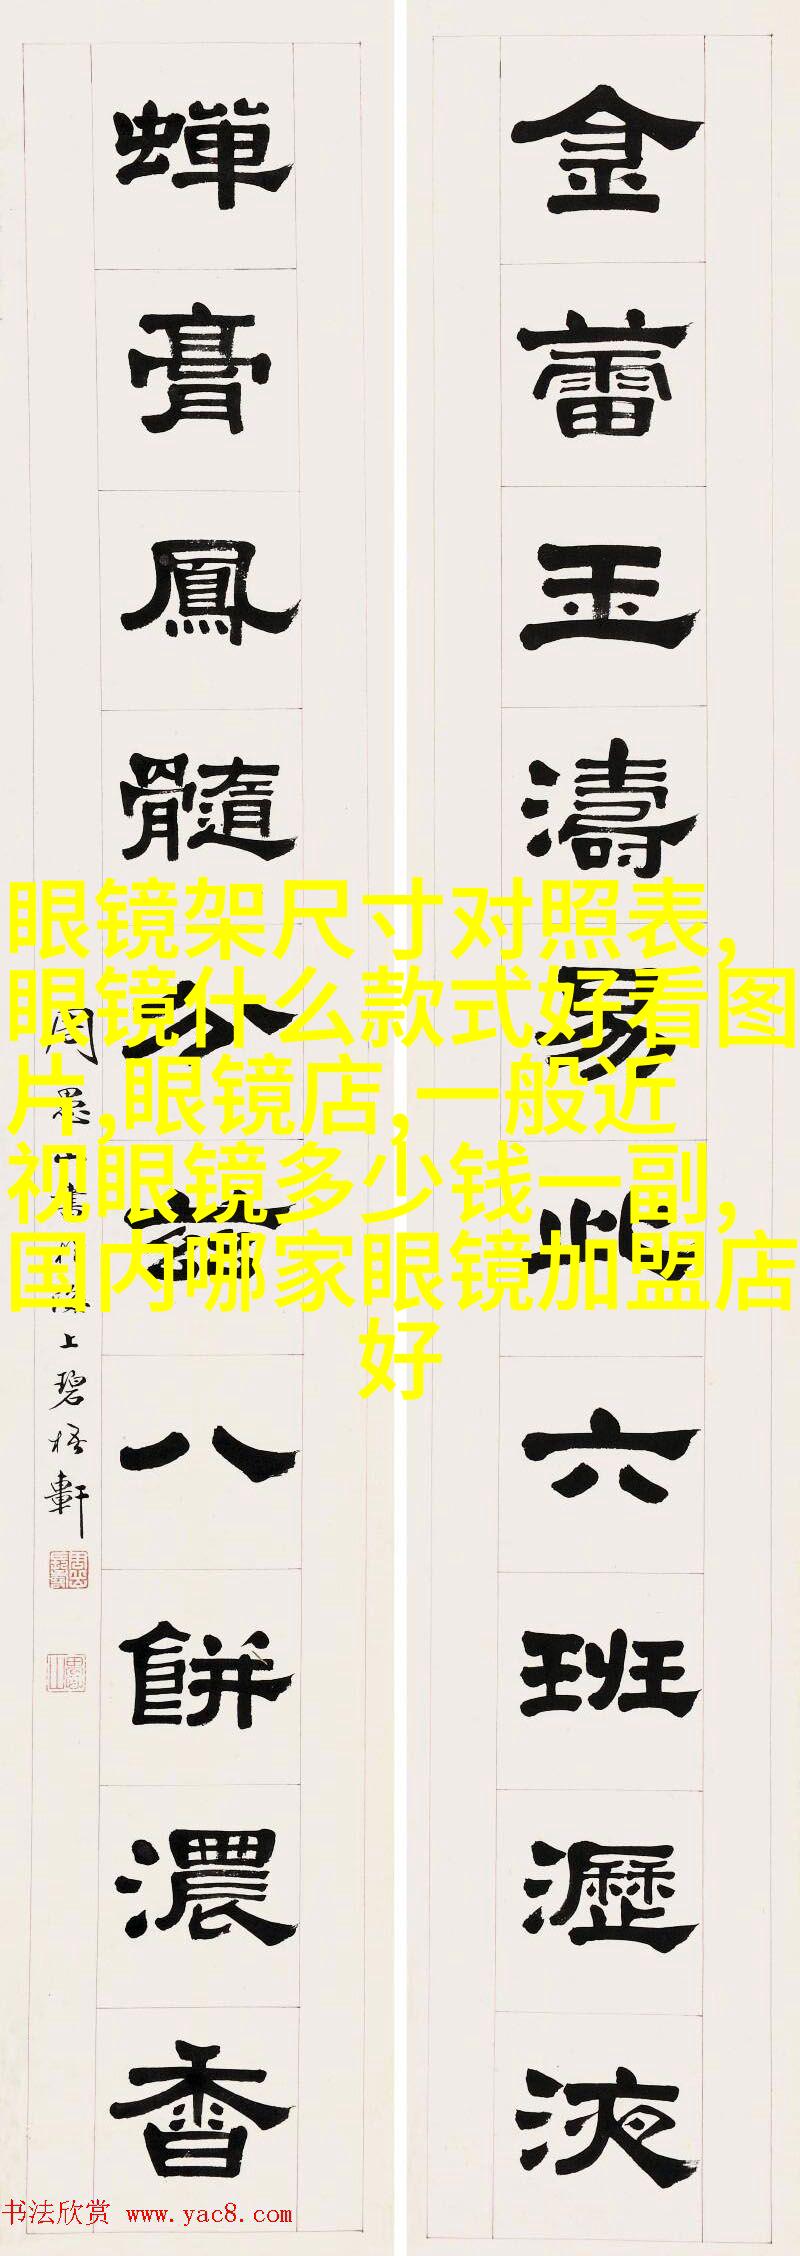 金蕾玉濤易此六班瀝液
蟬膏鳳髓分八餅濃香
周愚山書於海上碧梧軒
眼镜架尺寸对照表,
眼镜什么款式好看图
片,眼镜店,一般近
视眼镜多少钱一副,
国内哪家眼镜加盟店
好
书法欣赏 www.yac8.com